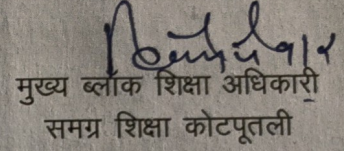 मुख्य ब्लॉक शिक्षा अधिकारी
समग्र शिक्षा कोटपूतली